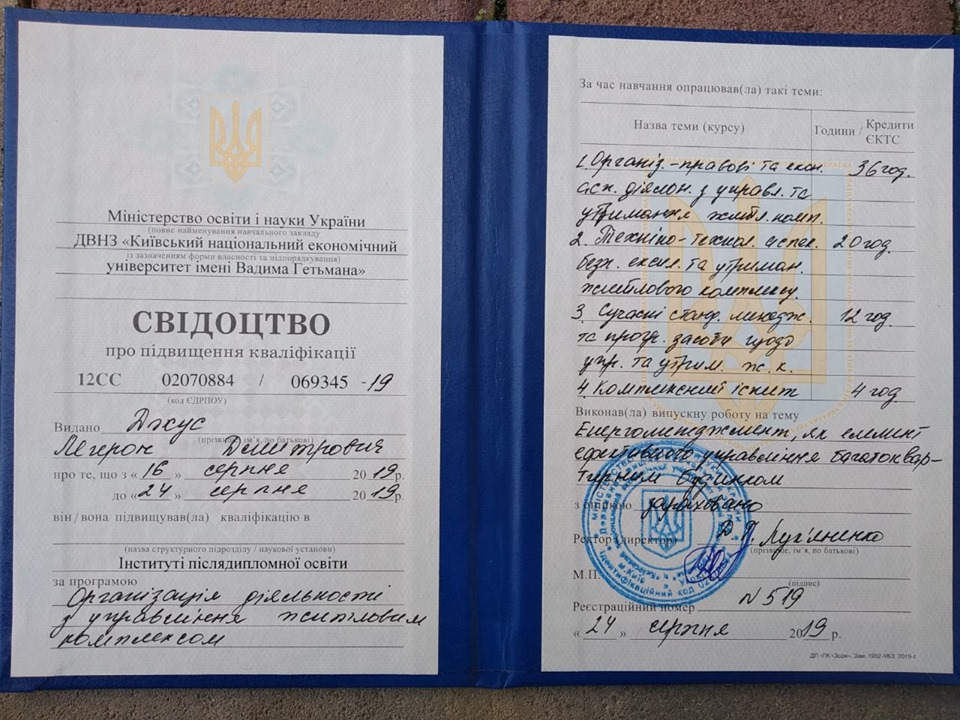 Міністерство освіти і науки України
(повне найменування навчального закладу
ДВНЗ «Київський національний економічний
із зазначенням форми власності та підпорядкування)
університет імені Вадима Гетьмана»
СВІДОЦТВО
про підвищення кваліфікації
12СС 02070884 / 069345 -19
(код ЄДРПОУ)
Видано Джус
(прізвище, ім'я, по батькові)
Легерон Дмитрович
про те, що з « 16 » серпня 2019р.
до « 24 » серпня 2019р.
він/вона підвищував(ла) кваліфікацію в
(назва структурного підрозділу / наукової установи)
Інституті післядипломної освіти
за програмою
Організація діяльності
з управління житловим
комплексом
За час навчання опрацював(ла) такі теми:
Назва теми (курсу) Години / Кредити ЄКТС
1. Організ.-правові та екон. 36 год.
асп. діялън. з управл. та
утримання житл. комп.
2. Техніко-технол. аспек. 20 год
безп. експл. та утриман.
житлового комплексу.
3. Сучасні станд. менедж. 12 год.
та прогр. засоби щодо
упр. та утрим. ж. к.
4 Комплексний іспит 4 год
Виконав(ла) випускну роботу на тему
Енергоменеджмент, як елемент
ефективного управління багатоквар-
тирним будинком
з оцінкою зараховано
Ректор (директор) Д. Г. Лук'яненко
(прізвище, ім'я, по батькові)
М.П.
(підпис)
Реєстраційний номер N 519
« 24 » серпня 2019 р.
ДП «ПК «Зоря». Зам. 1952-УБЗ. 2019 г.